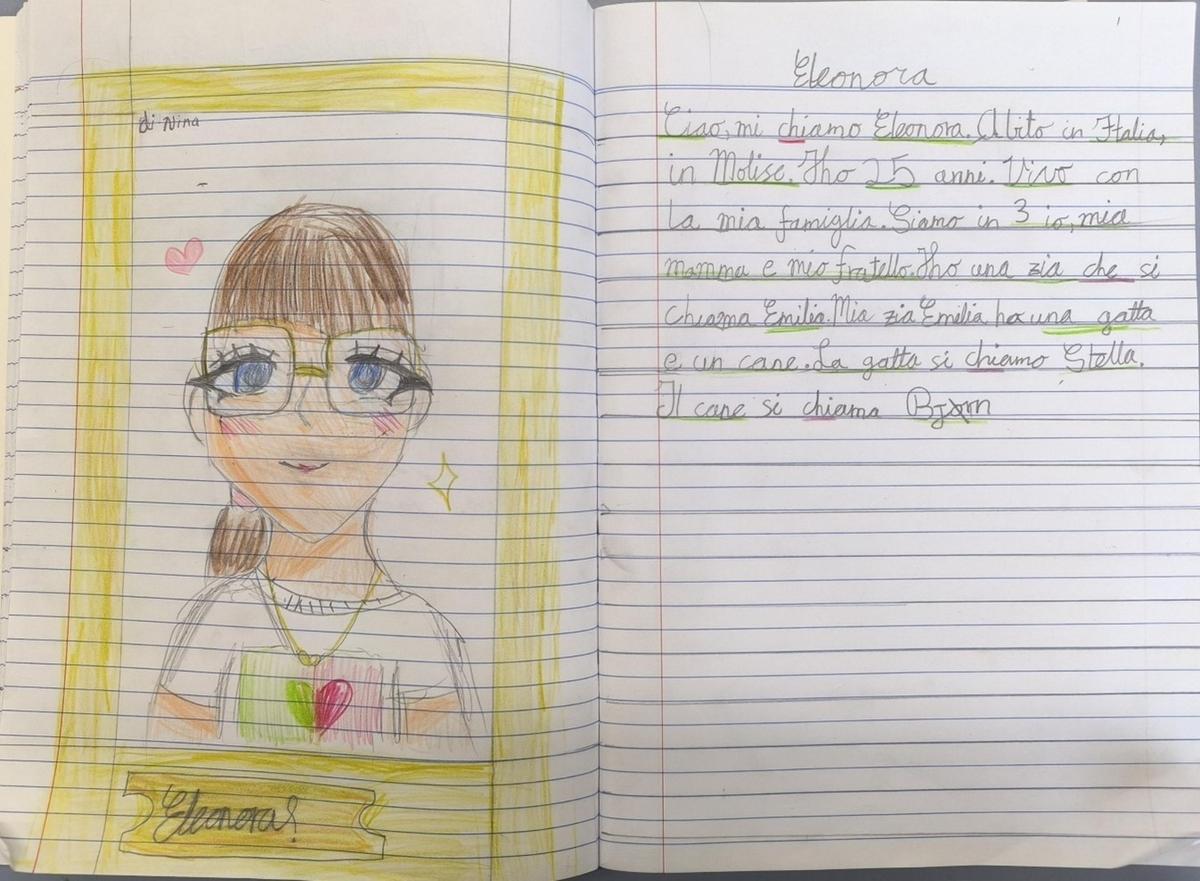 di Nina
Eleonora!
Eleonora
Ciao, mi chiamo Eleonora. Abito in Italia,
in Molise. Ho 25 anni. Vivo con
la mia famiglia. Siamo in 3 io, mia
mamma e mio fratello. Ho una zia che si
chiama Emilia. Mia zia Emilia ha una gatta
e un cane. La gatta si chiamo Stella.
Il cane si chiama